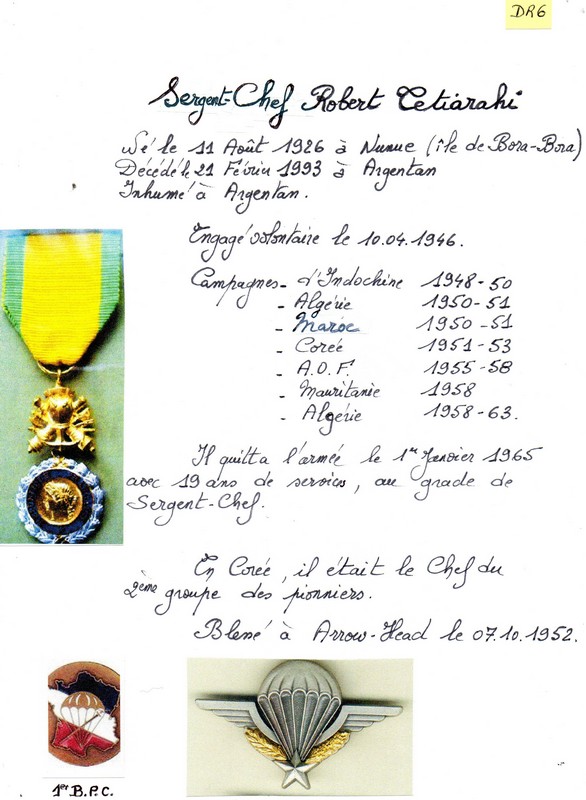 DR6
Sergent-Chef Robert Tetiarahi
Né le 11 Août 1926 à Nunue (île de Bora-Bora)
Décédé le 21 Février 1993 à Argentan
Inhumé à Argentan.
Engagé volontaire le 10.04.1946.
Campagnes - d'Indochine 1948-50
- Algérie 1950-51
- Maroc 1950-51
- Corée 1951-53
- A.O.F. 1955-58
- Mauritanie 1958
- Algérie 1958-63.
Il quitta l'armée le 1er Janvier 1965
avec 19 ans de services, au grade de
Sergent-Chef.
En Corée, il était le Chef du
2ème groupe des pionniers.
Blessé à Arrow-Head le 07.10.1952.
1er B.P.C.